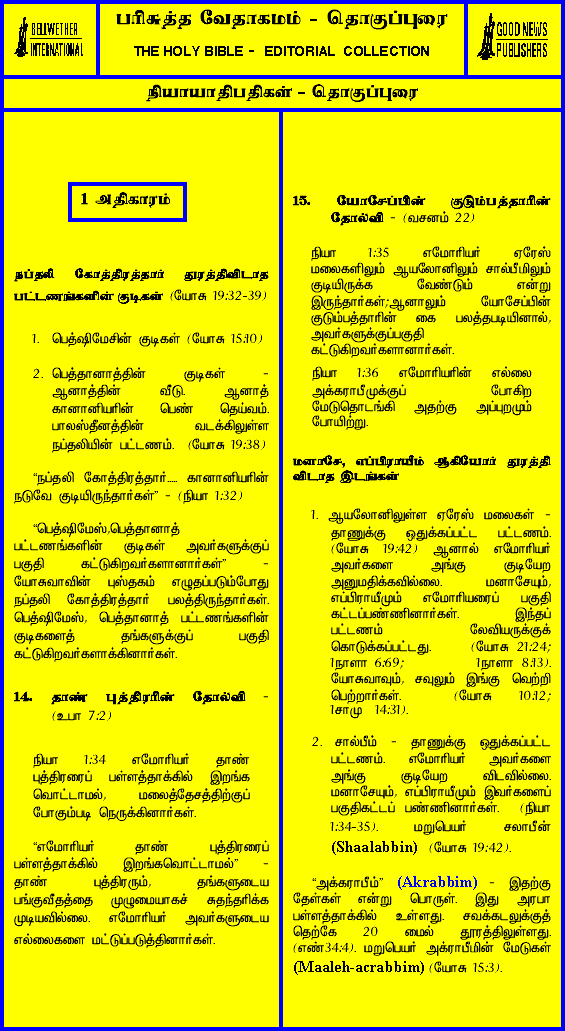 BELLWETHER
INTERNATIONAL
பரிசுத்த வேதாகமம் - தொகுப்புரை
THE HOLY BIBLE - EDITORIAL COLLECTION
GOOD NEWS
PUBLISHERS
நியாயாதிபதிகள் - தொகுப்புரை
1 அதிகாரம்
நப்தலி கோத்திரத்தார் துரத்திவிடாத
பட்டணங்களின் குடிகள் (யோசு 19:32-39)
1. பெத்ஷிமேசின் குடிகள் (யோசு 15:10)
2. பெத்தானாத்தின் குடிகள் -
ஆனாத்தின் வீடு. ஆனாத்
கானானியரின் பெண் தெய்வம்.
பாலஸ்தீனத்தின் வடக்கிலுள்ள
நப்தலியின் பட்டணம். (யோசு 19:38)
“நப்தலி கோத்திரத்தார்..... கானானியரின்
நடுவே குடியிருந்தார்கள்” - (நியா 1:32)
“பெத்ஷிமேஸ்,பெத்தானாத்
பட்டணங்களின் குடிகள் அவர்களுக்குப்
பகுதி கட்டுகிறவர்களானார்கள்” -
யோசுவாவின் புஸ்தகம் எழுதப்படும்போது
நப்தலி கோத்திரத்தார் பலத்திருந்தார்கள்.
பெத்ஷிமேஸ், பெத்தானாத் பட்டணங்களின்
குடிகளைத் தங்களுக்குப் பகுதி
கட்டுகிறவர்களாக்கினார்கள்.
14. தாண் புத்திரரின் தோல்வி -
(உபா 7:2)
நியா 1:34 எமோரியர் தாண்
புத்திரரைப் பள்ளத்தாக்கில் இறங்க
வொட்டாமல், மலைத்தேசத்திற்குப்
போகும்படி நெருக்கினார்கள்.
“எமோரியர் தாண் புத்திரரைப்
பள்ளத்தாக்கில் இறங்கவொட்டாமல்” -
தாண் புத்திரரும், தங்களுடைய
பங்குவீதத்தை முழுமையாகச் சுதந்தரிக்க
முடியவில்லை. எமோரியர் அவர்களுடைய
எல்லைகளை மட்டுப்படுத்தினார்கள்.
15. யோசேப்பின் குடும்பத்தாரின்
தோல்வி - (வசனம் 22)
நியா 1:35 எமோரியர் ஏரேஸ்
மலைகளிலும் ஆயலோனிலும் சால்பீமிலும்
குடியிருக்க வேண்டும் என்று
இருந்தார்கள்;ஆனாலும் யோசேப்பின்
குடும்பத்தாரின் கை பலத்தபடியினால்,
அவர்களுக்குப்பகுதி
கட்டுகிறவர்களானார்கள்.
நியா 1:36 எமோரியரின் எல்லை
அக்கராபீமுக்குப் போகிற
மேடுதொடங்கி அதற்கு அப்புறமும்
போயிற்று.
மனாசே, எப்பிராயீம் ஆகியோர் துரத்தி
விடாத இடங்கள்
1. ஆயலோனிலுள்ள ஏரேஸ் மலைகள் -
தாணுக்கு ஒதுக்கப்பட்ட பட்டணம்.
(யோசு 19:42) ஆனால் எமோரியர்
அவர்களை அங்கு குடியேற
அனுமதிக்கவில்லை. மனாசேயும்,
எப்பிராயீமும் எமோரியரைப் பகுதி
கட்டப்பண்ணினார்கள். இந்தப்
பட்டணம் லேவியருக்குக்
கொடுக்கப்பட்டது. (யோசு 21:24;
1நாளா 6:69; 1நாளா 8:13).
யோசுவாவும், சவுலும் இங்கு வெற்றி
பெற்றார்கள். (யோசு 10:12;
1சாமு 14:31).
2. சால்பீம் - தாணுக்கு ஒதுக்கப்பட்ட
பட்டணம். எமோரியர் அவர்களை
அங்கு குடியேற விடவில்லை.
மனாசேயும், எப்பிராயீமும் இவர்களைப்
பகுதிகட்டப் பண்ணினார்கள். (நியா
1:34-35). மறுபெயர் சலாபீன்
(Shaalabbin) (யோசு 19:42).
“அக்கராபீம்” (Akrabbim) - இதற்கு
தேள்கள் என்று பொருள். இது அரபா
பள்ளத்தாக்கில் உள்ளது. சவக்கடலுக்குத்
தெற்கே 20 மைல் தூரத்திலுள்ளது.
(எண்34:4). மறுபெயர் அக்ராபீமின் மேடுகள்
(Maaleh-acrabbim) (யோசு 15:3).